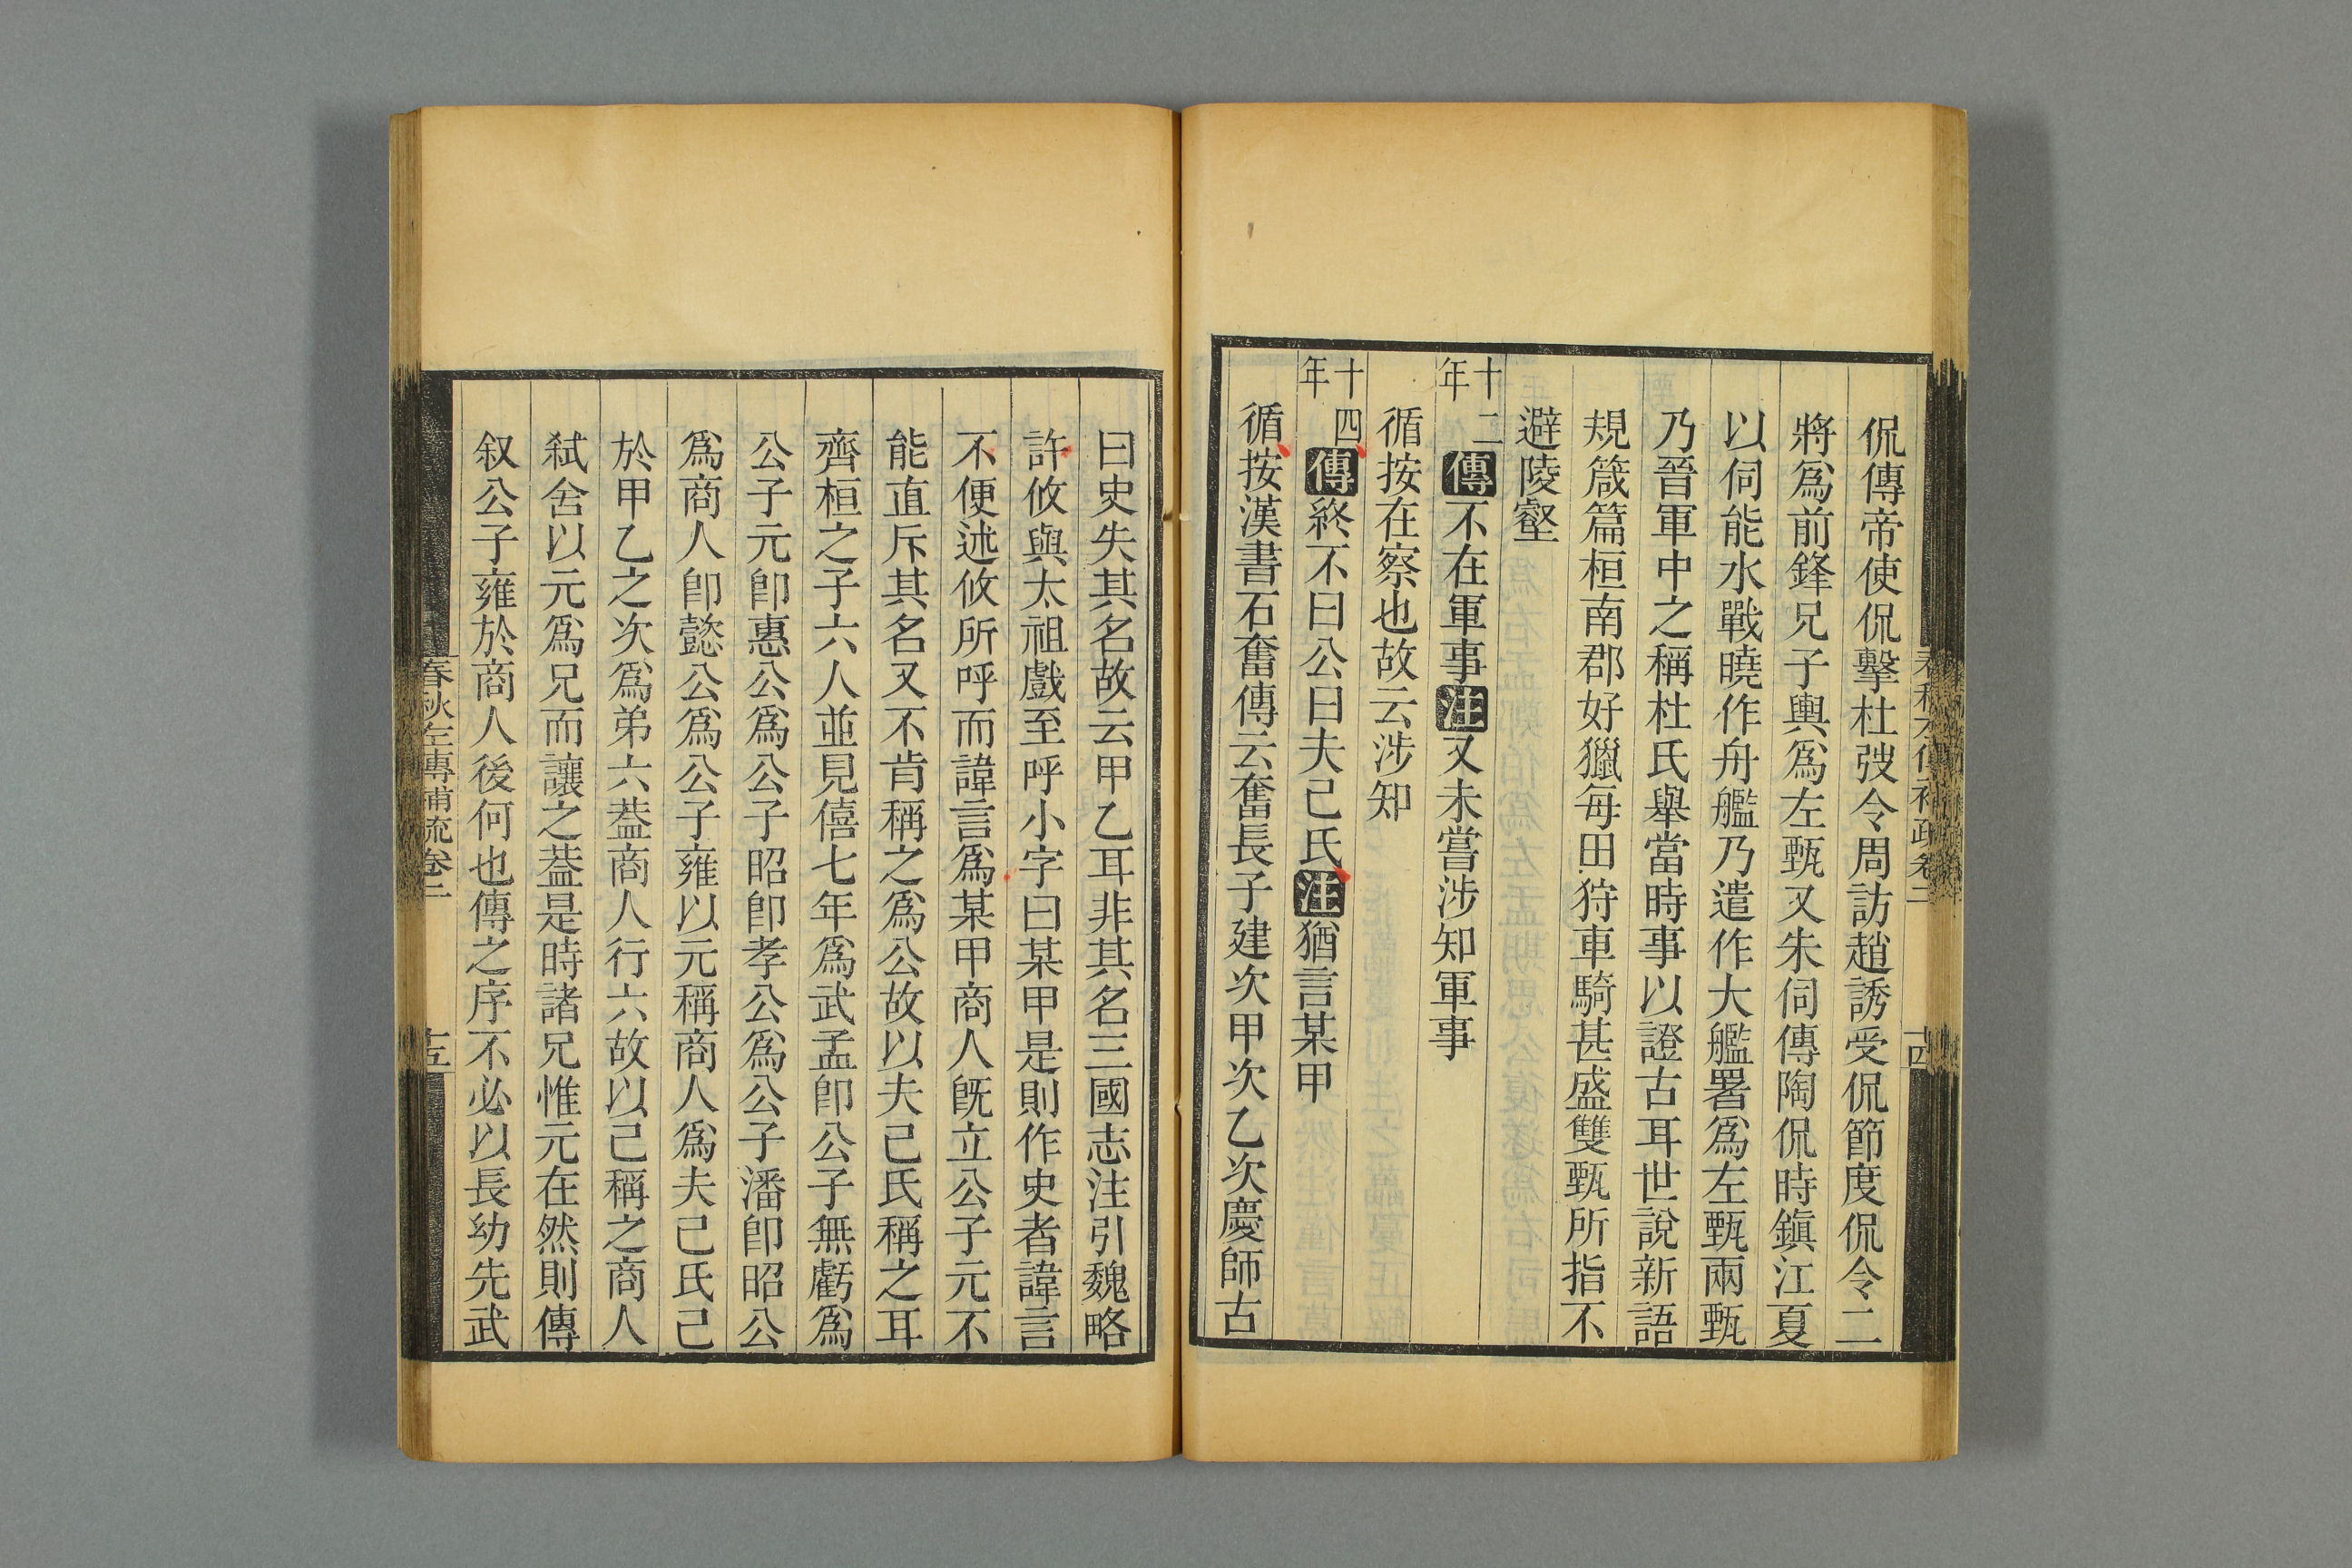 侃傳帝使侃擊杜弢令周訪趙誘受侃節度侃令二
將爲前鋒兄子輿爲左甄又朱伺傳陶侃時鎮江夏
以伺能水戰曉作舟艦乃遣作大艦署爲左甄兩甄
乃晉軍中之稱杜氏舉當時事以證古耳世說新語
規箴篇桓南郡好獵每田狩車騎甚盛雙甄所指不
避陵壑
十二年傳不在軍事注又未嘗涉知軍事
循按在察也故云涉知
十四年傳終不曰公曰夫己氏注猶言某甲
循按漢書石奮傳云奮長子建次甲次乙次慶師古
曰史失其名故云甲乙耳非其名三國志注引魏略
許攸與太祖戲至呼小字曰某甲是則作史者諱言
不便述攸所呼而諱言爲某甲商人旣立公子元不
能直斥其名又不肯稱之爲公故以夫己氏稱之耳
齊桓之子六人並見僖七年爲武孟卽公子無虧爲
公子元卽惠公爲公子昭卽孝公爲公子潘卽昭公
爲商人卽懿公爲公子雍以元稱商人爲夫己氏己
於甲乙之次爲弟六葢商人行六故以己稱之商人
弒舍以元爲兄而讓之葢是時諸兄惟元在然則傳
叙公子雍於商人後何也傳之序不必以長幼先武
春秋左傳補疏卷二
十五